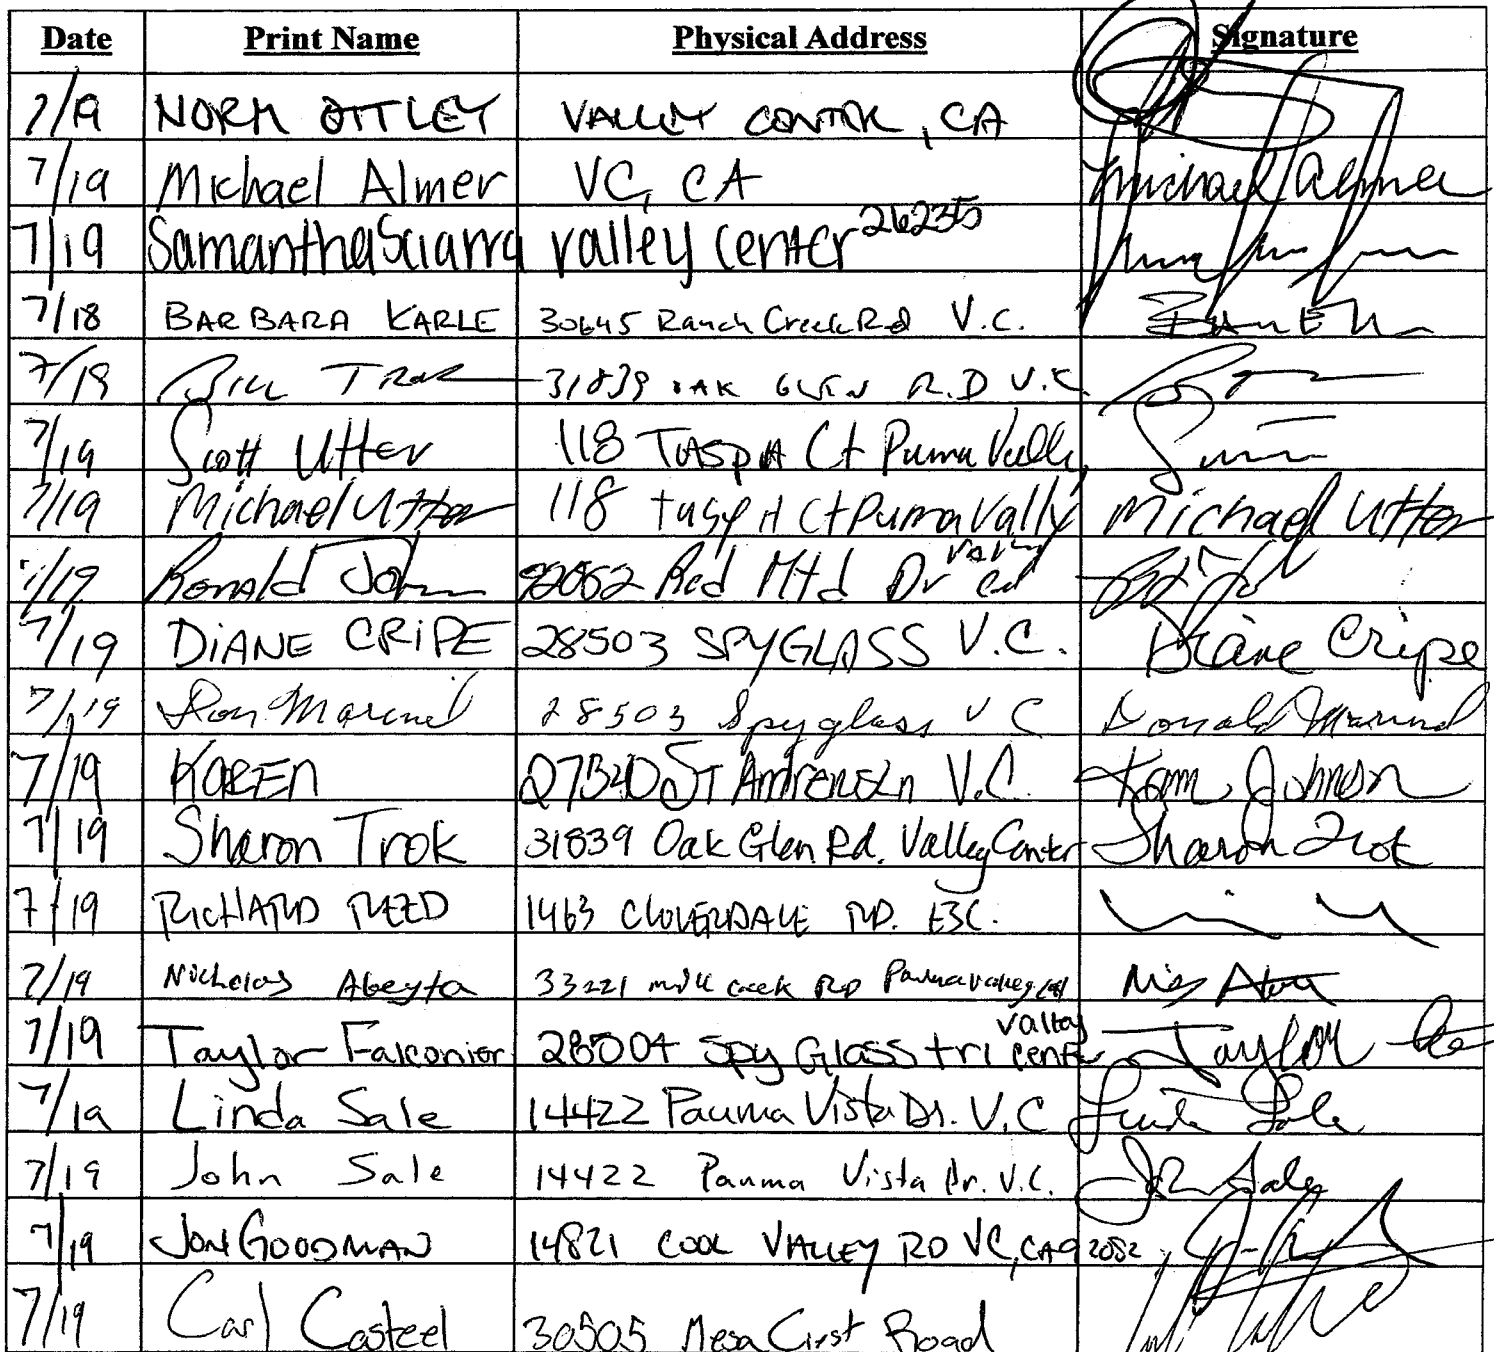 Date Print Name Physical Address Signature
7/19 NORM OTTLEY VALLEY CENTER, CA
7/19 Michael Almer VC, CA Michael Almer
7/19 Samantha Sciarra valley center 26235
7/18 BARBARA KARLE 30645 Ranch Creek Rd V.C.
7/19 Bill Trok 31839 OAK GLEN R.D V.C
7/19 Scott Utter 118 Ct Pauma Valley
7/19 Michael Utter 118 Ct Pauma Vally Michael Utter
7/19 Ronald John Red Mtd Dr
7/19 DiANE CRiPE 28503 SPYGLASS V.C. Diane Cripe
7/19 Don 28503 Spyglass V C Donald
7/19 KAREN V.C. Johnson
7/19 Sharon Trok 31839 Oak Glen Rd. Valley Center Sharon Trok
7/19 RICHARD REED 1463 CLOVERDALE RD. ESC.
7/19 Nicholas Abeyta 33221 creek RD Pauma valley
7/19 Taylor Falconier Spy Glass tri valley center Taylor
7/19 Linda Sale 14422 Pauma Vista Dr. V.C Linda Sale
7/19 John Sale 14422 Pauma Vista Dr. V.C. John Sale
7/19 JON GOODMAN 14821 COOL VALLEY RD VC, CA 92082
7/19 Carl Casteel 30505 Mesa Crest Road